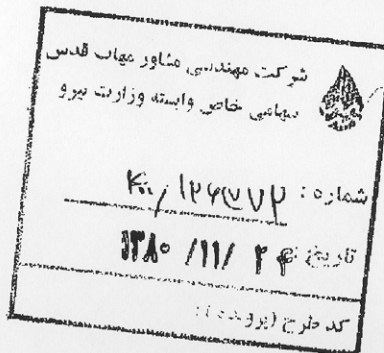 شرکت مهندسی مشاور مهاب قدس
سهامی خاص وابسته وزارت نیرو
شماره :
تاریخ : ۱۳۸۰ /۱۱/ ۲۴
کد طرح (پرونده) :